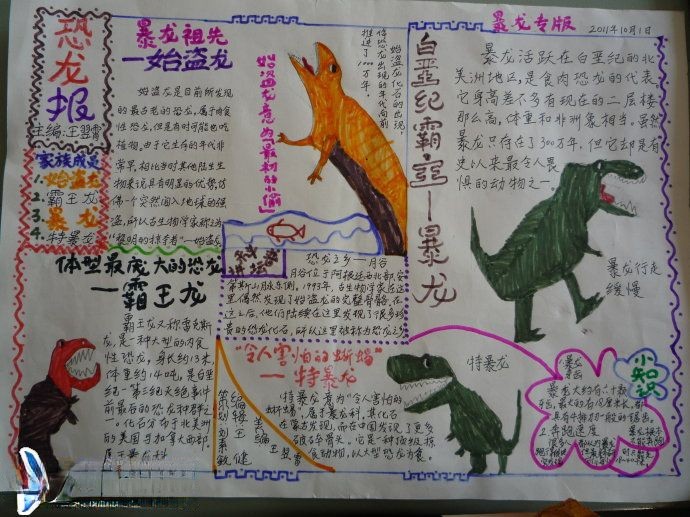 恐龙报
主编:王翌霄
家族成员
1. 始盗龙
2. 霸王龙
3. 暴龙
4. 特暴龙
暴龙祖先
—始盗龙
始盗龙是目前所发现
的最古老的恐龙,属于肉食
性恐龙,但是有时可能也吃
植物,由于它生存的年代非
常早,相比当时其他陆生生
物来说具有明显的优势,仿
佛一个突然闯入地球的强
盗,所以古生物学家称之为
“黎明的掠夺者”—始盗龙
始盗龙意为“最初的小偷”
始盗龙化石的出现,
使恐龙出现的年代向前
推进了1000万年。
暴龙专版
2011年10月1日
白垩纪霸主—暴龙
暴龙活跃在白垩纪的北
美洲地区,是食肉恐龙的代表。
它身高差不多有现在的二层楼
那么高,体重和非洲象相当,虽然
暴龙只存在了300万年,但它却是有
史以来最令人畏
惧的动物之一。
暴龙行走
缓慢
恐龙之乡—月谷
月谷位于阿根廷西北部,安
第斯山月永东侧,1993年,古生物学家在这
里偶然发现了始盗龙的完整骨骼,在
这之后,他们陆续在这里发现了很多珍
贵的恐龙化石,所以这里被称为恐龙之乡
体型最庞大的恐龙
—霸王龙
霸王龙又称雷克斯
龙,是一种大型的肉食
性恐龙,身长约13米,
体重约14吨,是白垩
纪—第三纪灭绝事件
前最后的恐龙种群之
一。化石分布于北美洲
的美国与加拿大西部,
属于暴龙科
“令人害怕的蜥蜴”
—特暴龙
特暴龙意为“令人害怕的
蜥蜴”,属于暴龙科,其化石
在蒙古发现,而在中国发现了更多
破碎骨头。它是种顶级掠
食动物,以大型恐龙为食。
主编 王翌霄
特暴龙
小知识
暴龙
暴龙大约有六十颗
2.奔跑速度